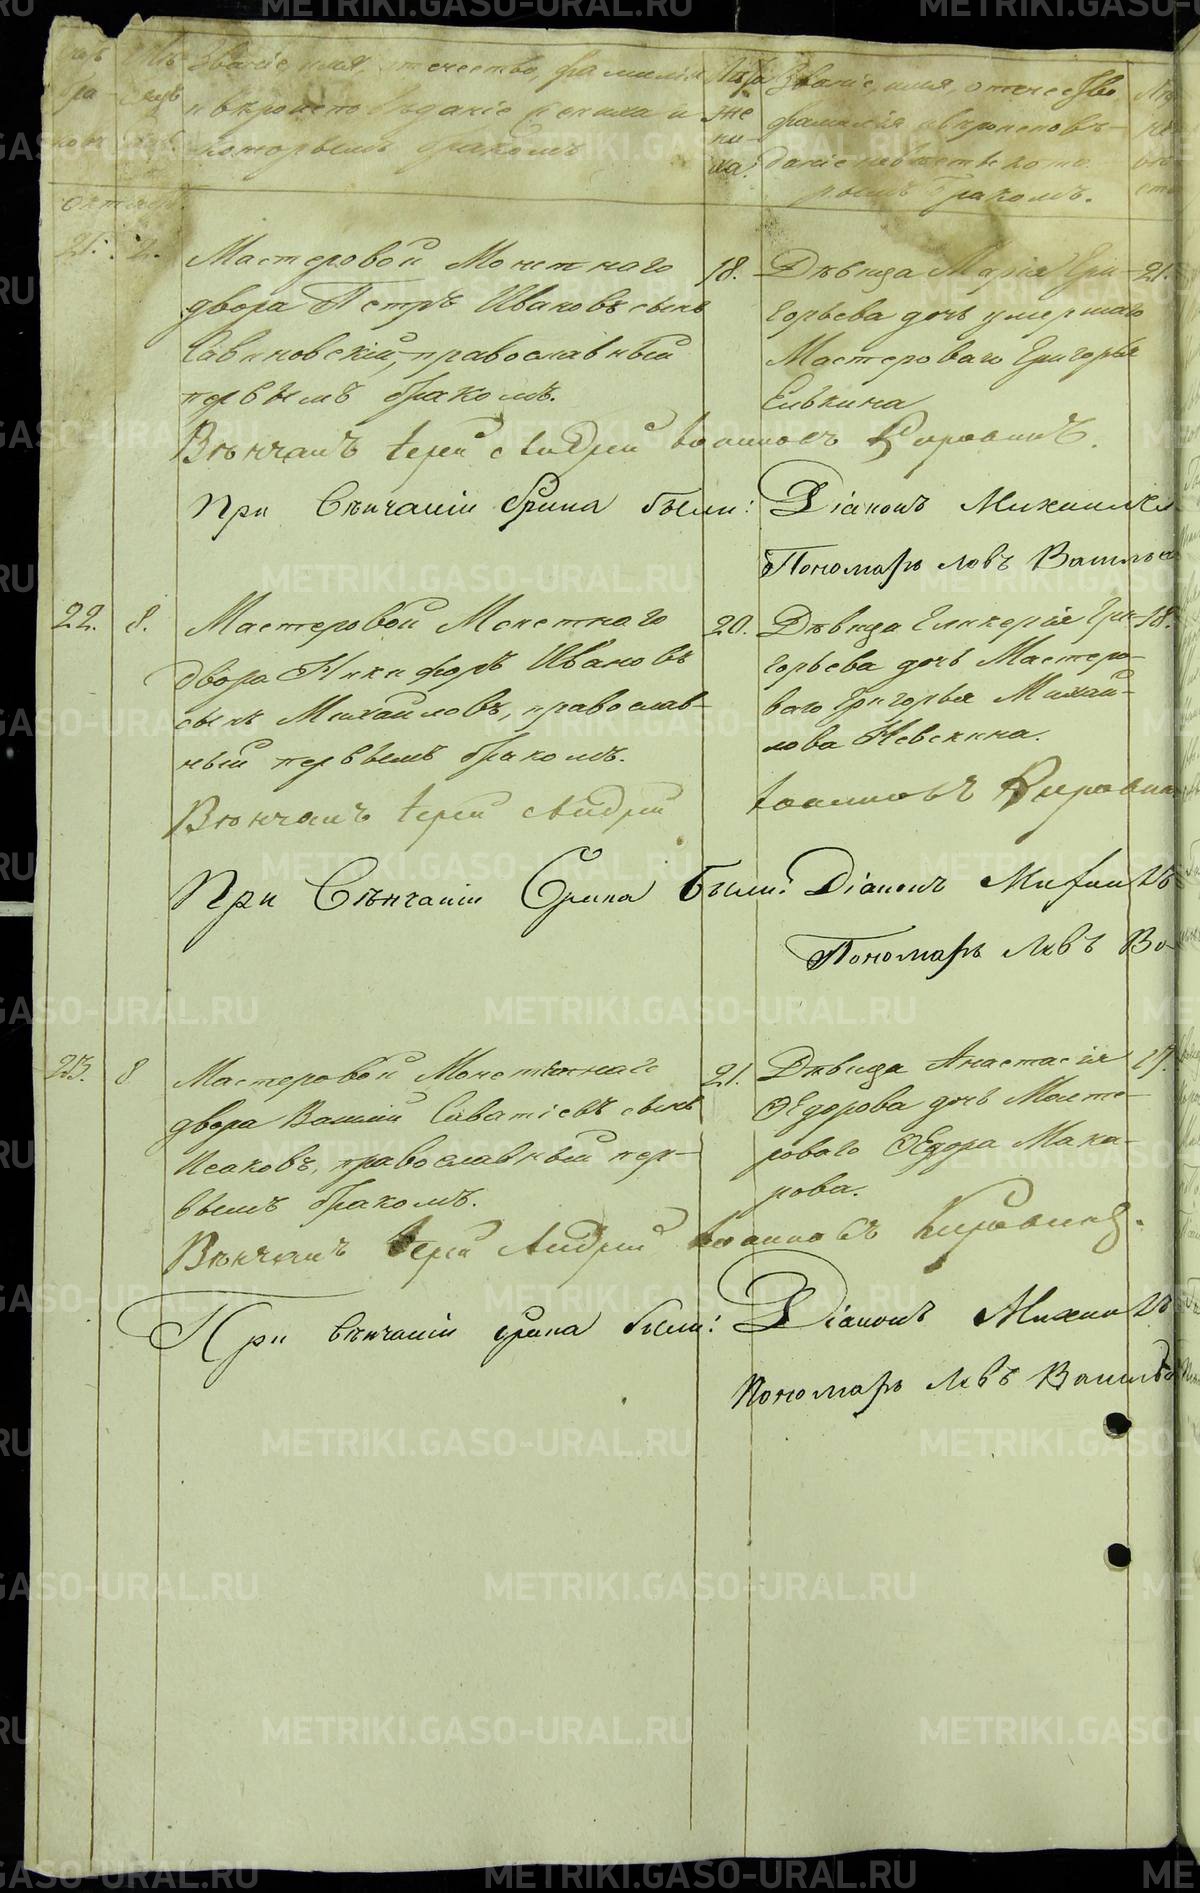 Звание, имя, отечество, фамилия
и вѣроисповѣдание жениха и
которымъ бракомъ
Лѣта
же
ни-
ха.
Звание, имя, отечество
фамилия и вѣроисповѣ-
дание невѣсты и кото
рымъ бракомъ.
Октяб.
21. 2. Мастеровой Монетнаго
двора Петръ Ивановъ сынъ
Савиновскій, православный
первымъ бракомъ.
18. Дѣвица Марія Гри- 21.
горьева дочь умершаго
Мастероваго Григорья
Елькина
Вѣнчалъ Іерей Андрей Іоанновъ Кировинъ.
При вѣнчаніи брака были: Діаконъ Михаилъ
Пономарь Левъ Василье
22. 8. Мастеровой Монетнаго
двора Никифоръ Ивановъ
сынъ Михайловъ, православ-
ный первымъ бракомъ.
20. Дѣвица Гликерія Гри- 18.
горьева дочь Мастеро-
ваго Григорья Михай-
лова Невскина.
Вѣнчалъ Іерей Андрей Іоанновъ Кировин
При вѣнчаніи брака были: Діаконъ Михаилъ
Пономарь Левъ Ва-
23. 8 Мастеровой Монетнаго
двора Василій Саватіевъ сынъ
Исаковъ, православный пер-
вымъ бракомъ.
21. Дѣвица Анастасія 17.
Ѳедорова дочь Масте-
роваго Ѳедора Мака-
рова.
Вѣнчалъ Іерей Андрей Іоанновъ Кировинъ.
При вѣнчаніи брака были: Діаконъ Михаилъ
Пономарь Левъ Василье
METRIKI.GASO-URAL.RU